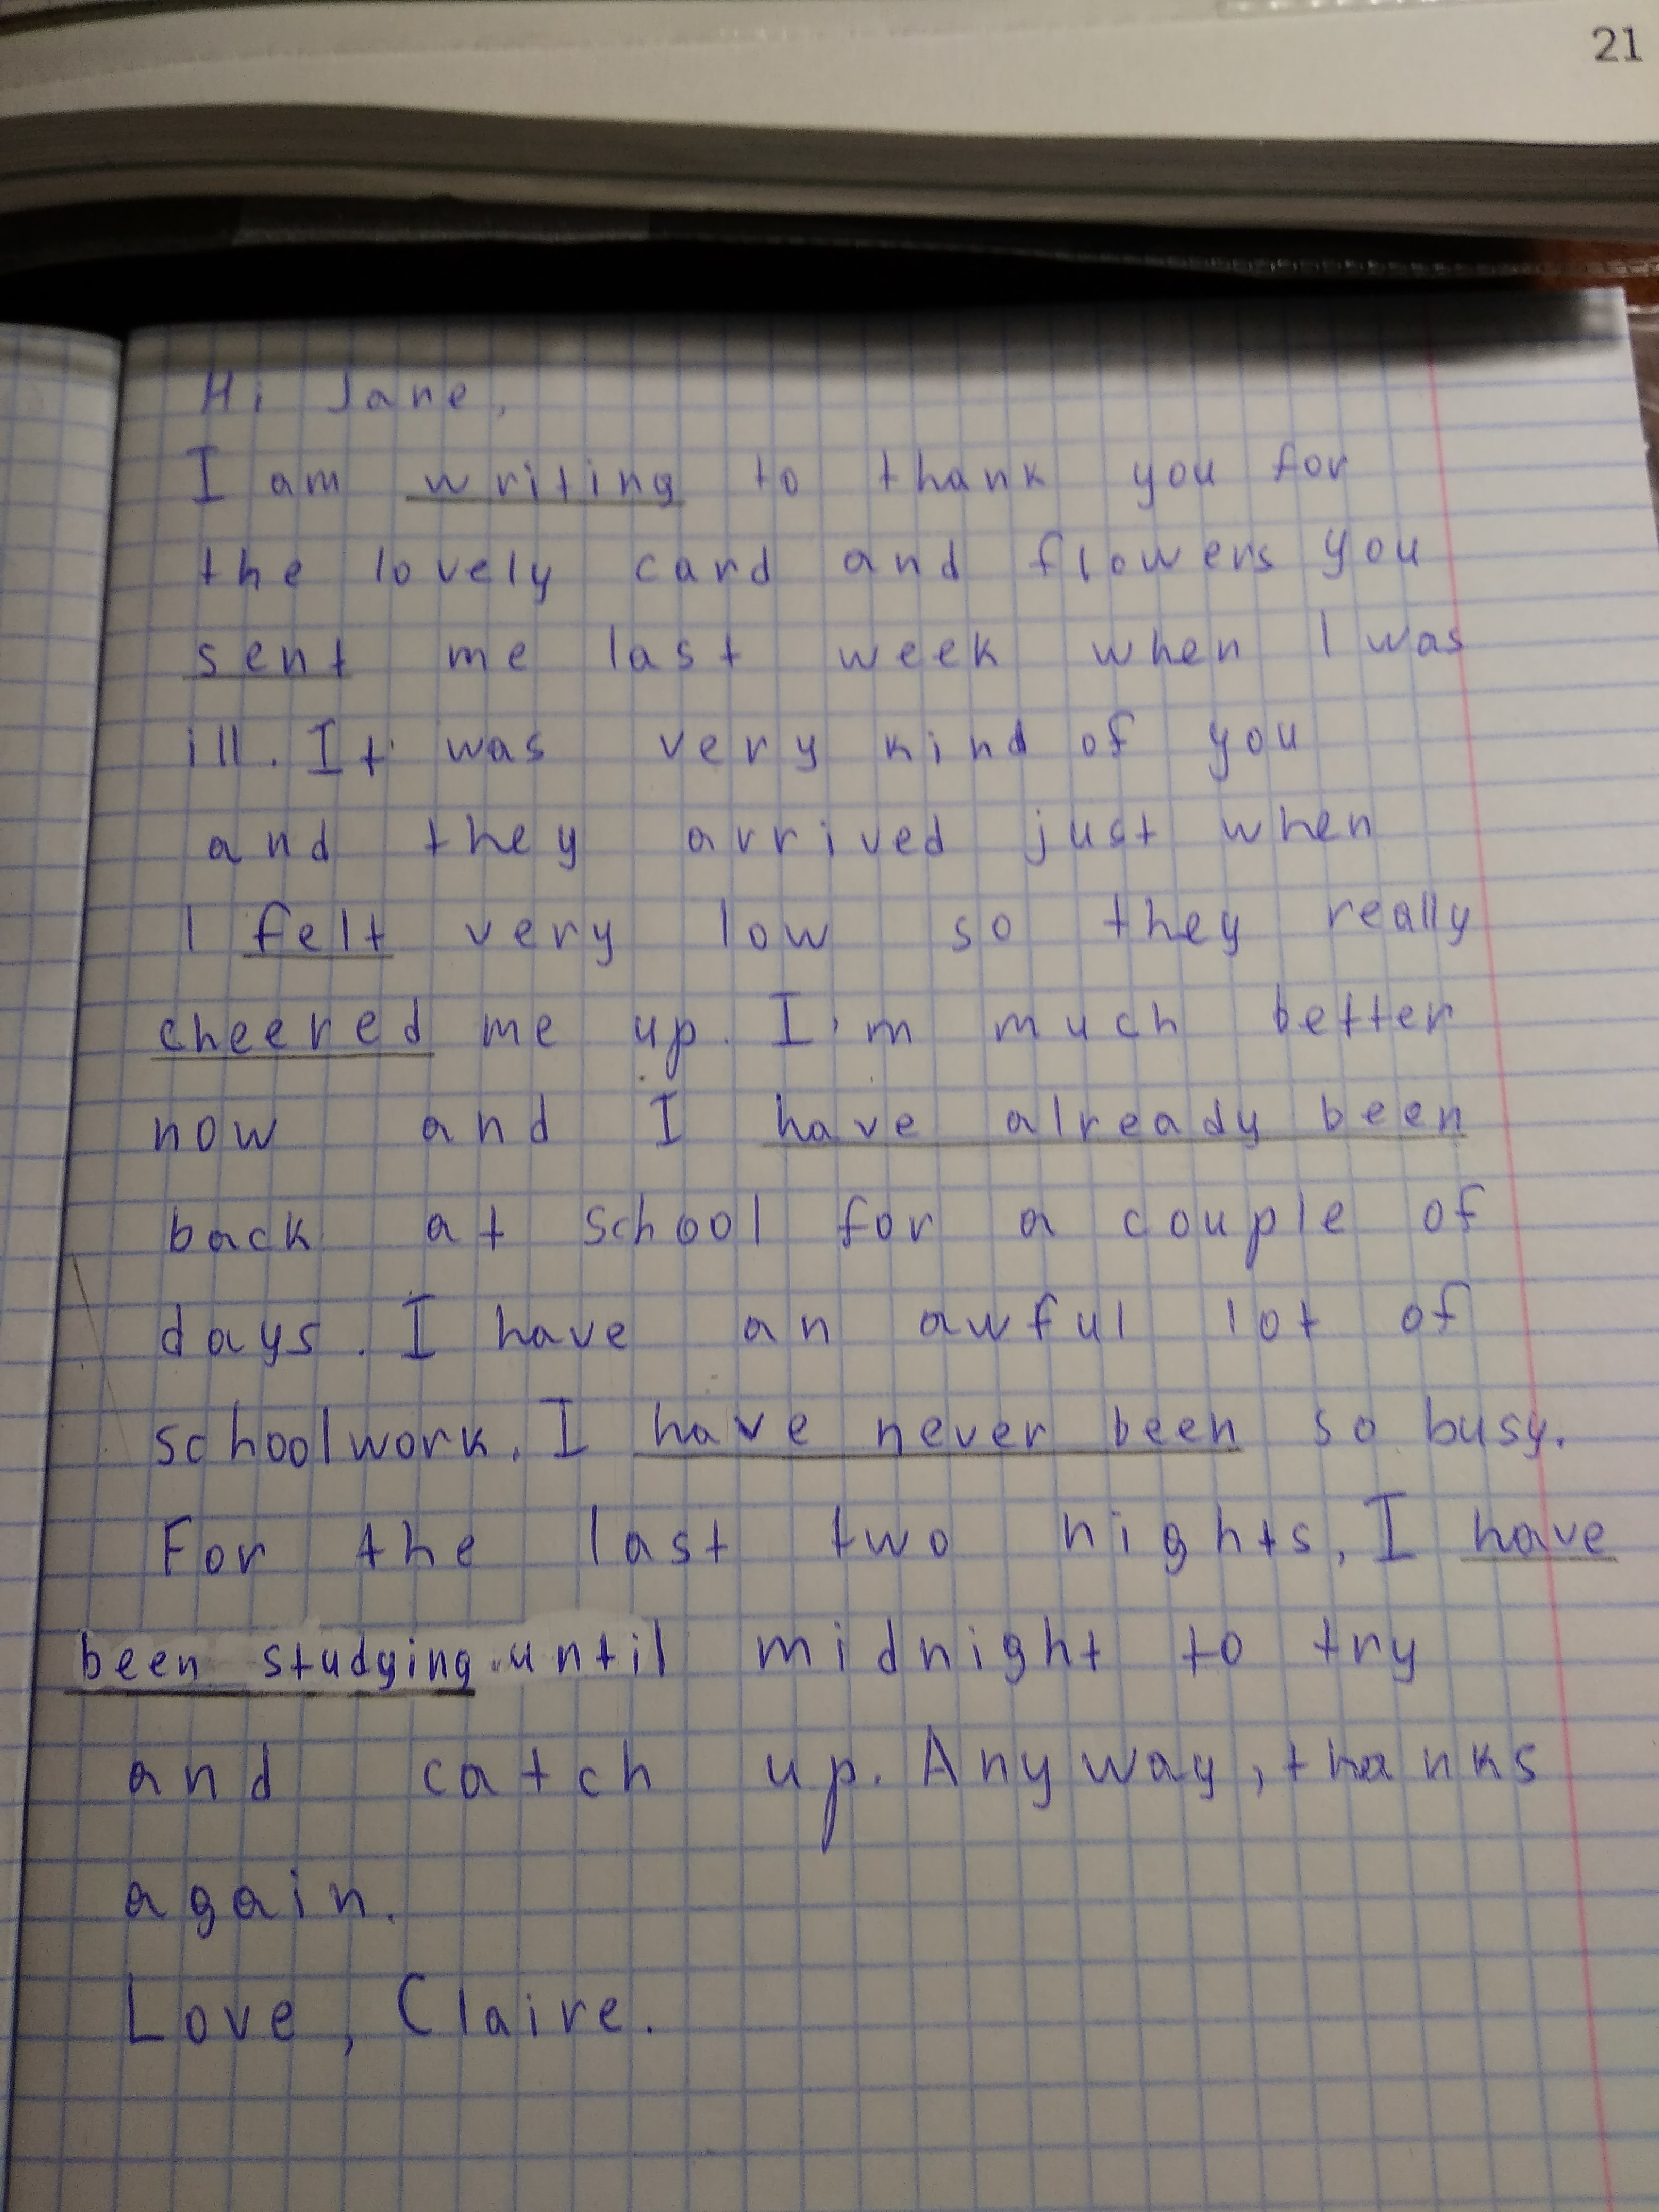 21
Hi Jane,
I am writing to thank you for
the lovely card and flowers you
sent me last week when I was
ill. It was very kind of you
and they arrived just when
I felt very low so they really
cheered me up. I'm much better
now and I have already been
back at school for a couple of
days. I have an awful lot of
schoolwork. I have never been so busy.
For the last two nights, I have
been studying until midnight to try
and catch up. Anyway, thanks
again.
Love, Claire.